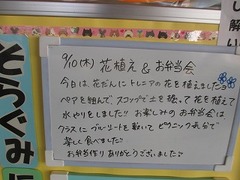 し
解い
とらぐみ
9/10(木) 花植え & お弁当会
今日は、花だんにトレニアの花を植えました。
ペアを組んで、スコップで土を掘って花を植えて
水やりをしました!! お楽しみのお弁当会は
クラスにブルーシートを敷いてピクニック気分で
楽しく食べました♡
お弁当作りありがとうございました